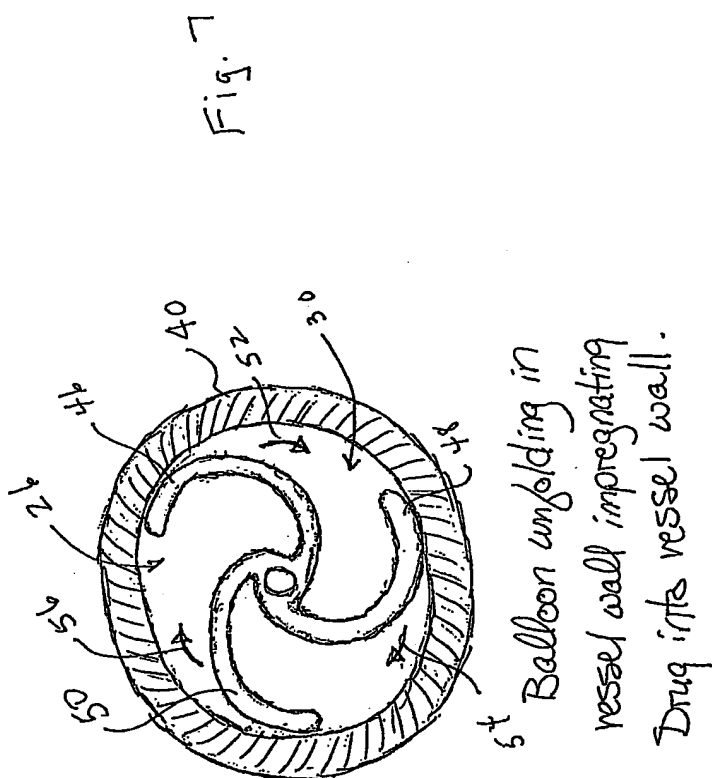 Fig. 7
40
52
46
30
26
56
50
48
54
Balloon unfolding in
vessel wall impregnating
Drug into vessel wall.